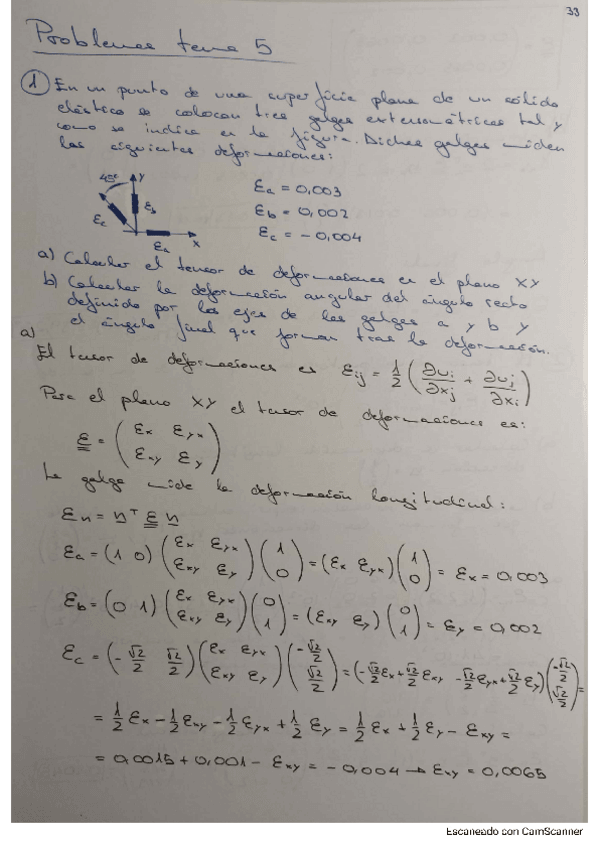 33
Problemas tema 5
1 En un punto de una superficie plana de un sólido
elástico se colocan tres galgas extensométricas tal y
como se indica en la figura. Dichas galgas miden
las siguientes deformaciones:
45º y
εc εb εa x
εa = 0,003
εb = 0,002
εc = - 0,004
a) Calcular el tensor de deformaciones en el plano XY
b) Calcular la deformación angular del ángulo recto
definido por los ejes de las galgas a y b y
el ángulo final que forman tras la deformación.
a)
El tensor de deformaciones es εij = 1/2 (∂ui/∂xj + ∂uj/∂xi)
Para el plano XY el tensor de deformaciones es:
ε = (εx εyx
εxy εy)
La galga mide la deformación longitudinal:
εn = nᵀ ε n
εa = (1 0) (εx εyx; εxy εy) (1; 0) = (εx εyx) (1; 0) = εx = 0,003
εb = (0 1) (εx εyx; εxy εy) (0; 1) = (εxy εy) (0; 1) = εy = 0,002
εc = (-√2/2 √2/2) (εx εyx; εxy εy) (-√2/2; √2/2) = (-√2/2 εx + √2/2 εxy -√2/2 εyx + √2/2 εy) (-√2/2; √2/2) =
= 1/2 εx - 1/2 εxy - 1/2 εyx + 1/2 εy = 1/2 εx + 1/2 εy - εxy =
= 0,0015 + 0,001 - εxy = - 0,004 → εxy = 0,0065
Escaneado con CamScanner